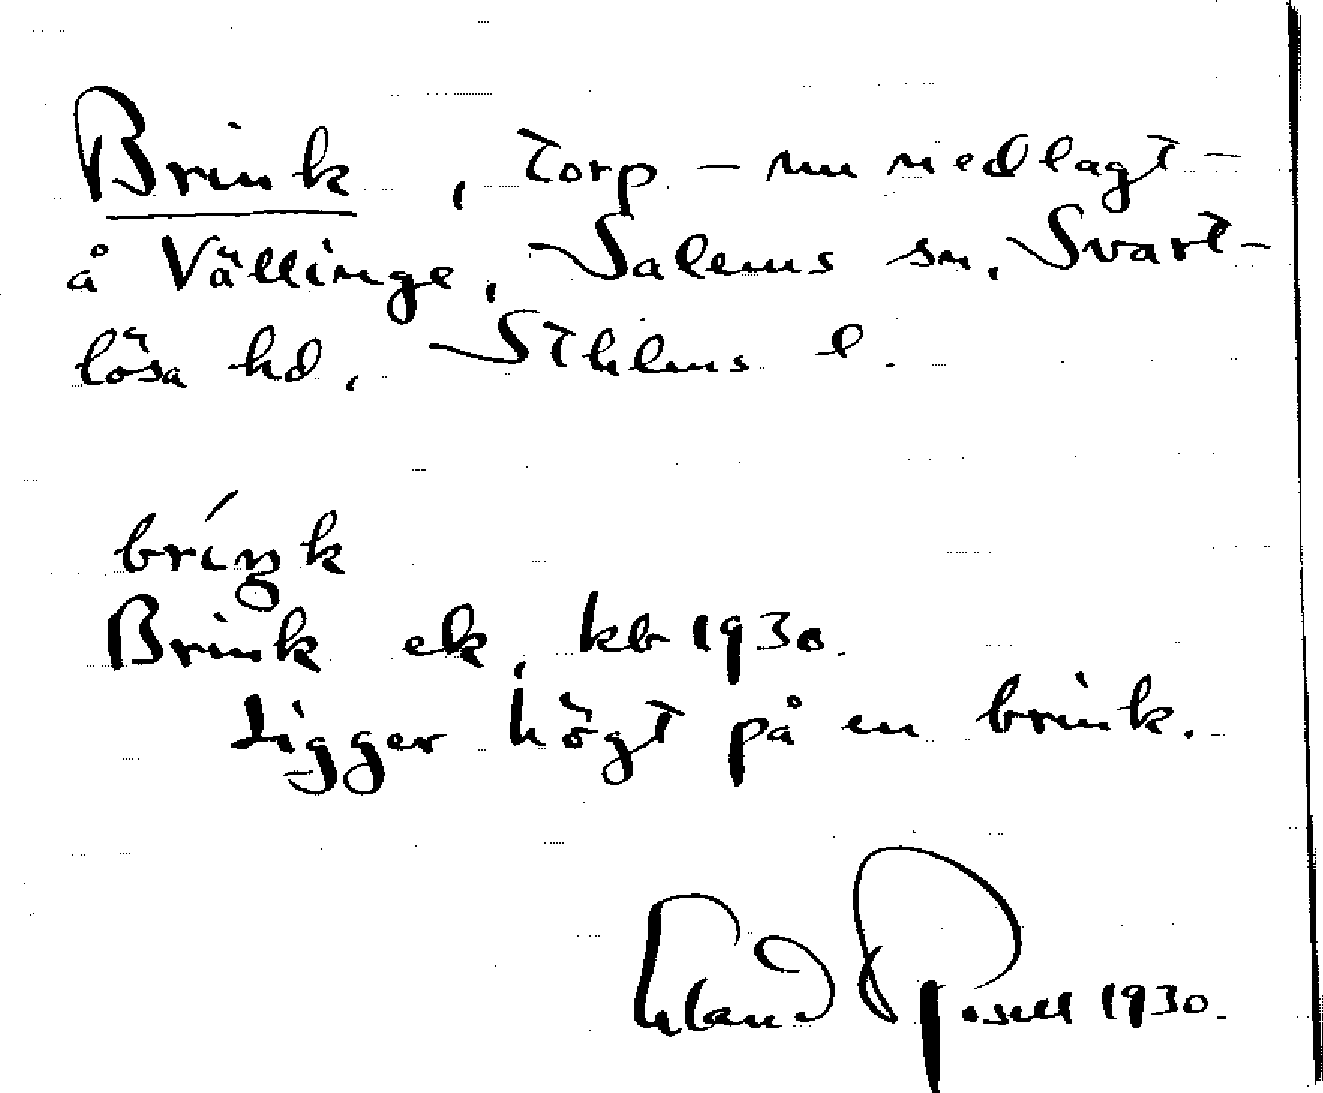 Brink, torp – nu nedlagt –
å Vällinge, Salems sn, Svart-
lösa hd, Sthlms l.
bríŋk
Brink ek, kb 1930.
Ligger högt på en brink.
Erland Rosell 1930.